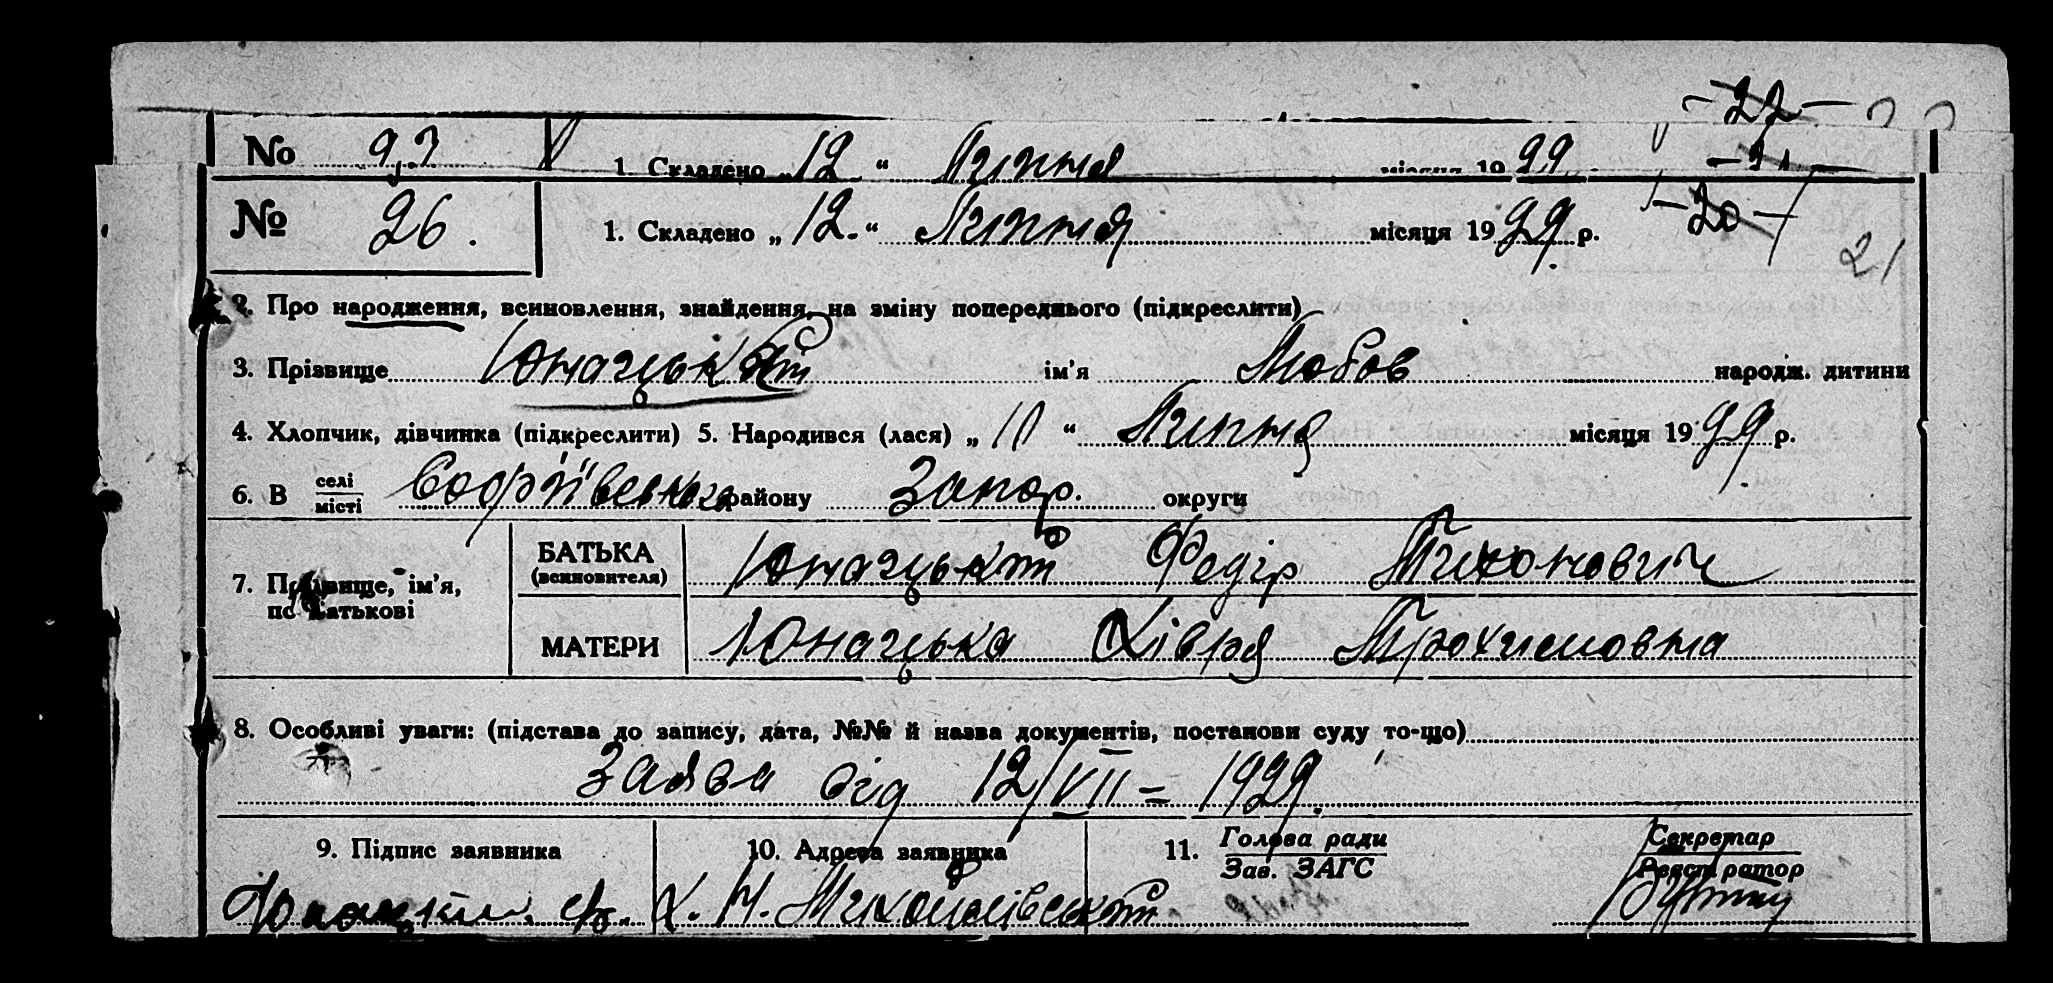 -22-
№ 93 1. Складено „12“ Липня місяця 1929 -21-
№ 26. 1. Складено „12.“ Липня місяця 1929. р. -20- 21
2. Про народження, всиновлення, знайдення, на зміну попереднього (підкреслити)
3. Прізвище Юнацький ім'я Любов народж. дитини
4. Хлопчик, дівчинка (підкреслити) 5. Народився (лася) „10“ Липня місяця 1929 р.
6. В селі місті Софіївського району Запор. округи
7. Прізвище, ім'я, по батькові
БАТЬКА (всиновителя) Юнацький Федір Тихонович
МАТЕРИ Юнацька Хівря Трохимовна
8. Особливі уваги: (підстава до запису, дата, №№ й назва документів, постанови суду то-що)
Заява від 12/VII – 1929.
9. Підпис заявника 10. Адреса заявника 11. Голова ради Секретар
Зав. ЗАГС Реєстратор
Х. Н. Михайлівський